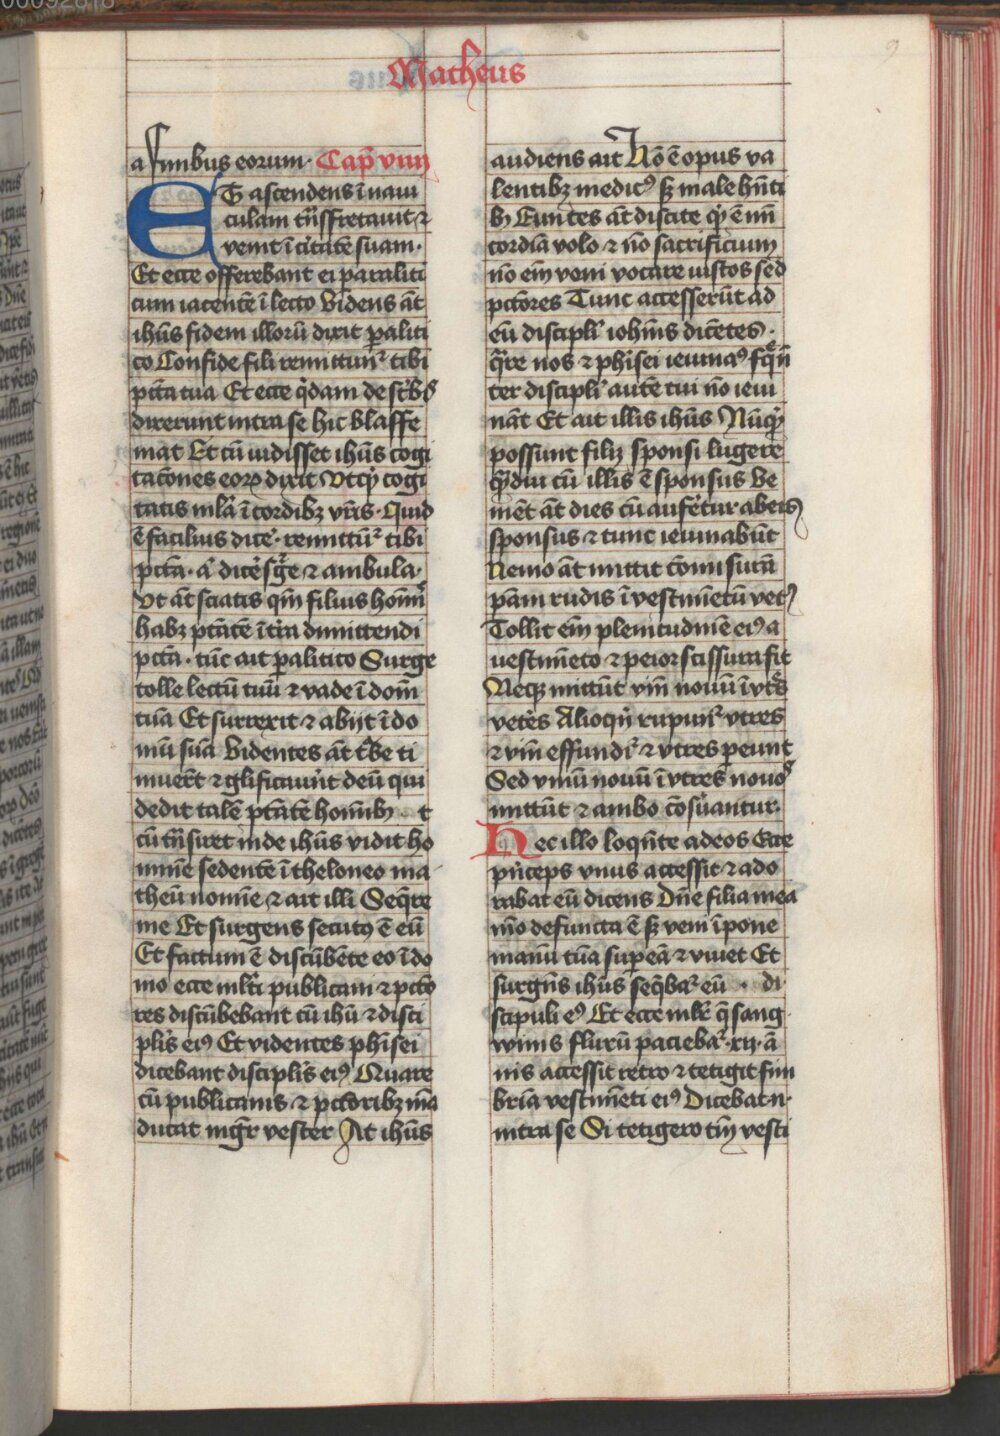 00092818
9
Matheus
a finibus eorum · Cap̄ viiij
ET ascendens ī naui
culam trāsfretauit ⁊
venit ī ciuitatē suam ·
Et ecce offerebant ei paraliti
cum iacentē ī lecto Videns aūt
ihūs fidem illorū dixit paͣliti
co Confide fili remittunt᷑ tibi
pctā tua Et ecce qͥdam de scͥbis
dixerunt intra se hic blasfe
mat Et cū uidisset ihūs cogi
tacōnes eoꝝ dixit Vt qͥd cogi
tatis mͣla ī cordibꝫ vr̄is · Quid
ē facilius dicē̄ · remittūt᷑ tibi
pctā · aͭ dicē̄ sͬge ⁊ ambula ·
Vt aūt sciatis qm̄ filius homīs
habꝫ ptātē ī tr̄a dimittendi
pctā · tūc ait pͣalitico Surge
tolle lectū tuū ⁊ vade ī domū
tuā Et surrexit ⁊ abijt ī do
mū suā Videntes aūt tͬbe ti
muerūt ⁊ glificauūt deū qui
dedit talē ptātē homībꝫ · t
cū trāsiret inde ihūs vidit ho
minē sedentē ī theloneo ma
theū nomīe ⁊ ait illi Seqͤre
me Et surgens secutꝰ ē eū
Et factum ē discūbēte eo ī do
mo ecce mlͭi publicani ⁊ pctō
res discūbebant cū ihū ⁊ disci
plīs eiꝰ Et videntes phīsei
dicebant disciplīs eiꝰ Quare
cū publicanis ⁊ pctōribꝫ mā
ducat mgͬr vester At ihūs
audiens ait Nō ē opus va
lentibꝫ medicꝰ sꝫ male hn̄ti
bꝫ Euntes aūt discite qͥd ē mī
cordiā volo ⁊ nō sacrificium
nō em̄ veni vocare iustos sed
pctōres Tunc accesserūt ad
eū disciplī iohīnis dicētes ·
Qͣre nos ⁊ phīsei ieiunaꝰ fͬqn̄
ter disciplī autē tui nō ieiu
nāt Et ait illis ihūs Nūqͥd
possunt filij sponsi lugere
qͣmdiu cū illis ē sponsus Ve
niēt aūt dies cū aufēret᷑ ab eis
sponsus ⁊ tunc ieiunabūt
Nemo aūt mittit cōmissurā
pāni rudis ī vestimētū vetꝰ
Tollit em̄ plenitudinē eiꝰ a
uestimēto ⁊ peior scissura fit
Neqꝫ mittūt vinū nouū ī vtͤs
vetē̄s Alioqͥn rupūt᷑ vtres
⁊ vinū effundit᷑ ⁊ vtres peunt
Sed vinū nouū ī vtres nouos
mittūt ⁊ ambo cōsūantur ·
Hec illo loqūte ad eos Ecce
pͥnceps vnus accessit ⁊ ado
rabat eū dicens Dn̄e filia mea
mō defuncta ē sꝫ veni īpone
manū tuā sup eā ⁊ viuet Et
surgens ihūs seqͤbat᷑ eū · di
scipuli eiꝰ Et ecce mlͬr qͤ sang
winis fluxū paciebat᷑ · xij · ā
nis accessit retro ⁊ tetigit fim
briā vestimēti eiꝰ Dicebat n̄ ·
intra se Si tetigero tm̄ vesti